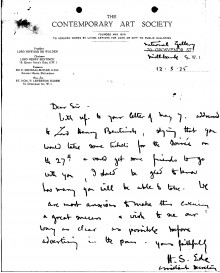 THE
CONTEMPORARY ART SOCIETY
President
LORD HOWARD DE WALDEN
Chairman
LORD HENRY BENTINCK
National Gallery
Millbank S.W.1
12.5.25
Dear Sir
With ref to your letter of May 7, addressed
to Lord Henry Bentinck, saying that you
would take some tickets for the Soirée on
the 27th & would get some friends to go
with you, I shd be glad to know
how many you will be able to take. We
are most anxious to make this evening
a great success & wish to see our
way as clear as possible before
advertising in the press. Yours faithfully
H. S. Ede